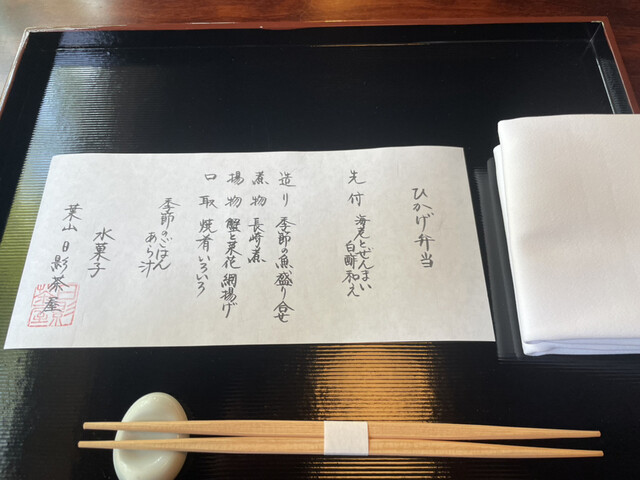 ひかげ弁当
先付 海老とぜんまい
白酢和え
造り 季節の魚盛り合せ
煮物 長崎煮
揚物 蟹と菜花 網揚げ
口取 焼肴いろいろ
季節のごはん
あら汁
水菓子
葉山 日影茶屋